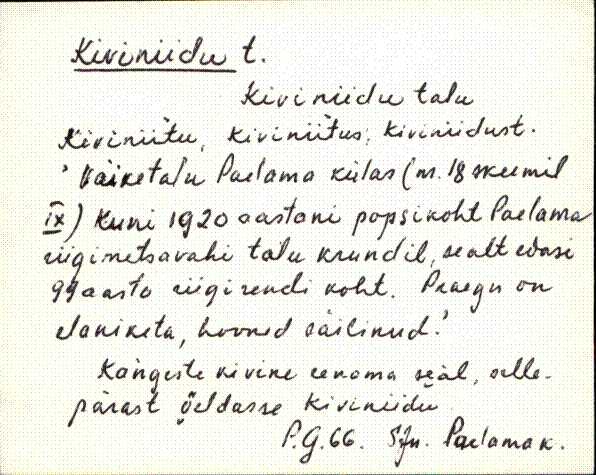 Kiviniidu t.
Kiviniidu talu
Kiviniitu, kiviniitus, kiviniidust.
' Väiketalu Paelama külas (nr. 18 skeemil
IX) Kuni 1920 aastani popsikoht Paelama
riigimetsavahi talu krundil, sealt edasi
99 aasta riigirendi koht. Praegu on
elaniketa, hooned säilinud.'
Kangeste kivine eenama seal, selle-
pärast öeldasse Kiviniidu
P.G.66. SJn. Paelama k.